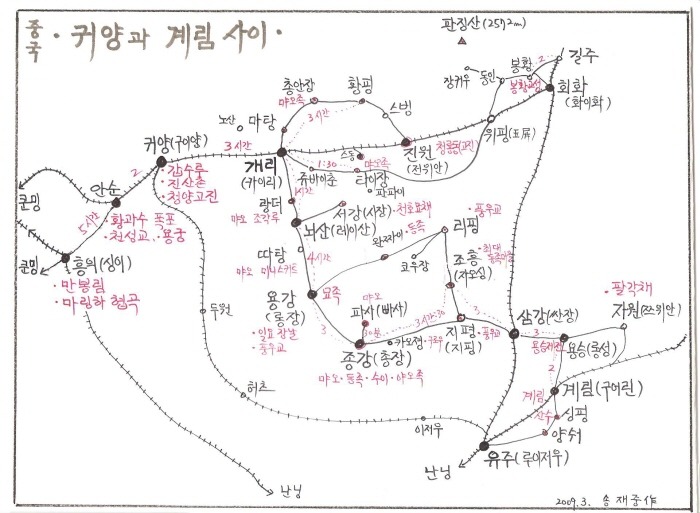 중국
· 귀양과 계림 사이 ·
판징산(2572m)
길주
2
봉황
봉황고성
동인
장커우
회화
(화이화)
위핑(玉屏)
총안장
마오족
황평
3시간
스빙
노산
마탕
진원
(전위안)
청룡동(고진)
귀양(구이양)
3시간
개리
(카이리)
1:30
스동
마오족
쥬바이춘
타이장
파파이
2
· 갑수루
· 진산촌
· 청양고진
쿤밍
안순
5시간
· 황과수 폭포
· 천성교 · 용궁
쿤밍
흥의(싱이)
· 만봉림
· 마링하 협곡
1시간
랑더
서강(시장) · 천호묘채
먀오 조각루
뇌산(레이산)
따탕
4시간
먀오 미니스커트
왕짜이 · 동족
· 풍우교
리핑
조흥
(자오싱)
· 최대
동족마을
코우장
용강
(롱장)
묘족
· 일요장날
· 풍우교
3
먀오
파사(빠사)
30분
3시간:30
3
종강(총장)
카오정 · 고루
지평
(지핑)
· 풍우교
먀오 · 동족 · 수이 · 야오족
삼강(싼장)
3
· 팔각채
자원(쯔위안)
용승(롱성)
용승제전
2
계림
계림(구이린)
산수
싱핑
양숴
유주(루이저우)
이저우
두원
허츠
난닝
난닝
2009.3. 송재중作